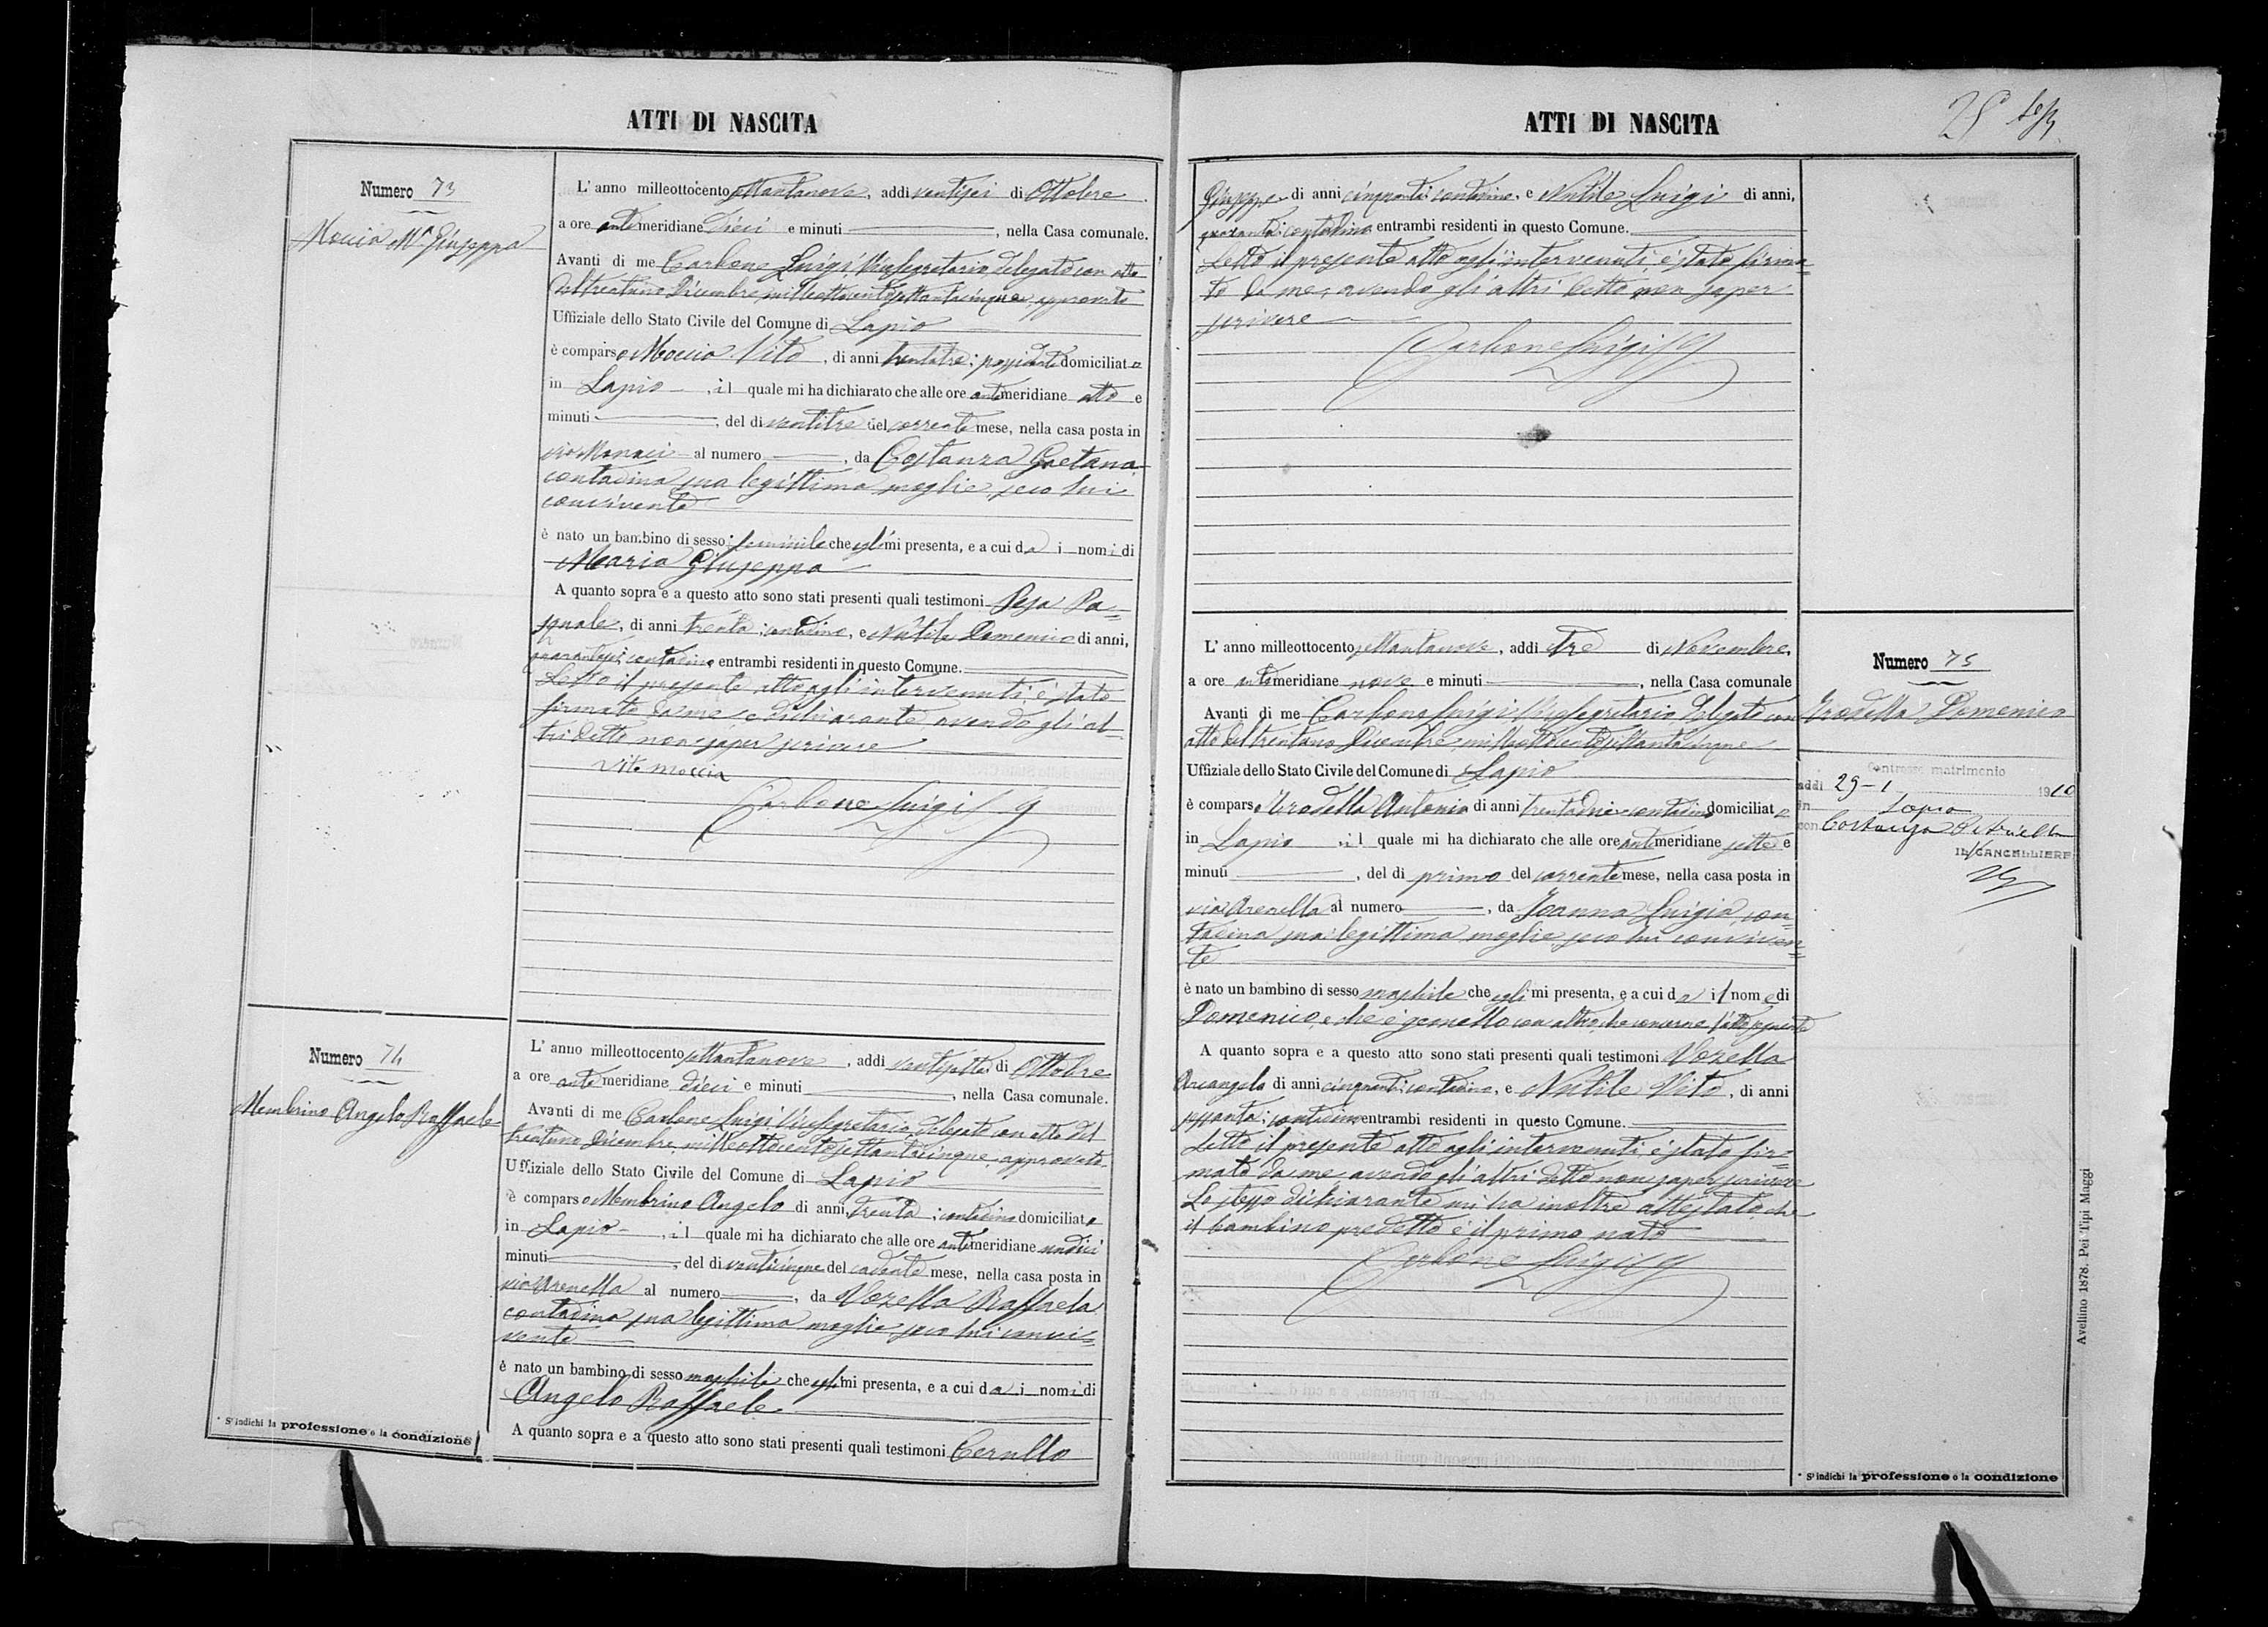 ATTI DI NASCITA
Numero 73
Moccia Mª Giuseppa
L' anno milleottocento settantanove, addì ventisei di Ottobre
a ore antemeridiane dieci e minuti, nella Casa comunale.
Avanti di me Carbone Luigi Vicesegretario delegato con atto
del trentuno Dicembre milleottocentosettantacinque approvato
Uffiziale dello Stato Civile del Comune di Lapio
è comparso Moccia Vito, di anni trentatre; possidente domiciliato
in Lapio, il quale mi ha dichiarato che alle ore antemeridiane otto e
minuti, del dì ventitre del corrente mese, nella casa posta in
via Monaci al numero, da Costanza Gaetana
contadina sua legittima moglie, seco lui
convivente
è nato un bambino di sesso femminile che egli mi presenta, e a cui dà i nomi di
Maria Giuseppa
A quanto sopra e a questo atto sono stati presenti quali testimoni Pesa Pa=
squale, di anni trenta; contadino, e Nutile Domenico di anni,
quarantasei contadino entrambi residenti in questo Comune.
Letto il presente atto agli intervenuti, è stato
firmato da me e dichiarante avendo gli al=
tri detto non saper scrivere
Vito moccia
Carbone Luigi
Numero 74
Membrino Angelo Raffaele
L' anno milleottocento settantanove, addì ventisette di Ottobre
a ore antemeridiane dieci e minuti, nella Casa comunale.
Avanti di me Carbone Luigi Vicesegretario delegato con atto del
trentuno Dicembre milleottocentosettantacinque approvato
Uffiziale dello Stato Civile del Comune di Lapio
è comparso Membrino Angelo di anni trenta; contadino domiciliato
in Lapio, il quale mi ha dichiarato che alle ore antemeridiane undici
minuti, del dì venticinque del cadente mese, nella casa posta in
via Arenella al numero, da Vozella Raffaela
contadina sua legittima moglie seco lui convi=
vente
è nato un bambino di sesso maschile che egli mi presenta, e a cui dà i nomi di
Angelo Raffaele.
A quanto sopra e a questo atto sono stati presenti quali testimoni Cerullo
* S'indichi la professione o la condizione
ATTI DI NASCITA
25
Giuseppe di anni cinquanta: contadino, e Nutile Luigi di anni,
quaranta: contadino entrambi residenti in questo Comune.
Letto il presente atto agli intervenuti, è stato firma=
to da me, avendo gli altri detto non saper
scrivere
Carbone Luigi
L' anno milleottocento settantanove, addì tre di Novembre,
a ore antemeridiane nove e minuti, nella Casa comunale
Avanti di me Carbone Luigi Vicesegretario delegato con
atto del trentuno Dicembre milleottocentosettantacinque
Uffiziale dello Stato Civile del Comune di Lapio
è comparso Trodella Antonio di anni trentadue contadino domiciliato
in Lapio, il quale mi ha dichiarato che alle ore antemeridiane sette e
minuti, del dì primo del corrente mese, nella casa posta in
via Arenella al numero, da Joanna Luigia, con=
tadina sua legittima moglie seco lui conviven=
te
è nato un bambino di sesso maschile che egli mi presenta, e a cui dà il nome di
Domenico, e che è gemello con altro, che concerne l'atto seguente
A quanto sopra e a questo atto sono stati presenti quali testimoni Vozella
Arcangelo di anni cinquanta; contadino, e Nutile Vito, di anni
sessanta; contadino entrambi residenti in questo Comune.
Letto il presente atto agli intervenuti, è stato fir=
mato da me, avendo gli altri detto non saper scrivere
Lo stesso dichiarante mi ha inoltre attestato, che
il bambino predetto è il primo nato
Carbone Luigi
Numero 75
Trodella Domenico
Contrasse matrimonio
addì 29-1 1910
in Lapio
con Costanza Petriella
IL CANCELLIERE
Avellino 1878. Pei Tipi Maggi
* S'indichi la professione o la condizione